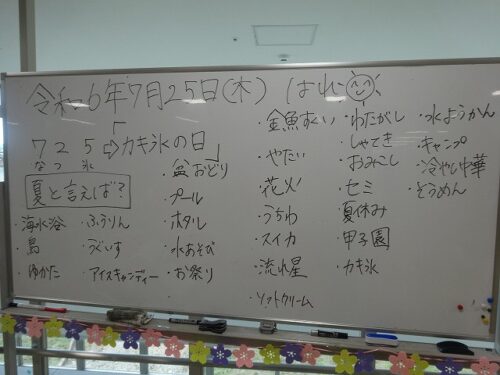 令和6年7月25日(木) はれ
7 2 5 ⇨「カキ氷の日」
なつ 氷
夏と言えば?
・海水浴
・島
・ゆかた
・ふうりん
・うぐいす
・アイスキャンディー
・盆おどり
・プール
・ホタル
・水あそび
・お祭り
・金魚すくい
・やたい
・花火
・うちわ
・スイカ
・流れ星
・ソフトクリーム
・わたがし
・しゃてき
・おみこし
・セミ
・夏休み
・甲子園
・カキ氷
・水ようかん
・キャンプ
・冷やし中華
・そうめん